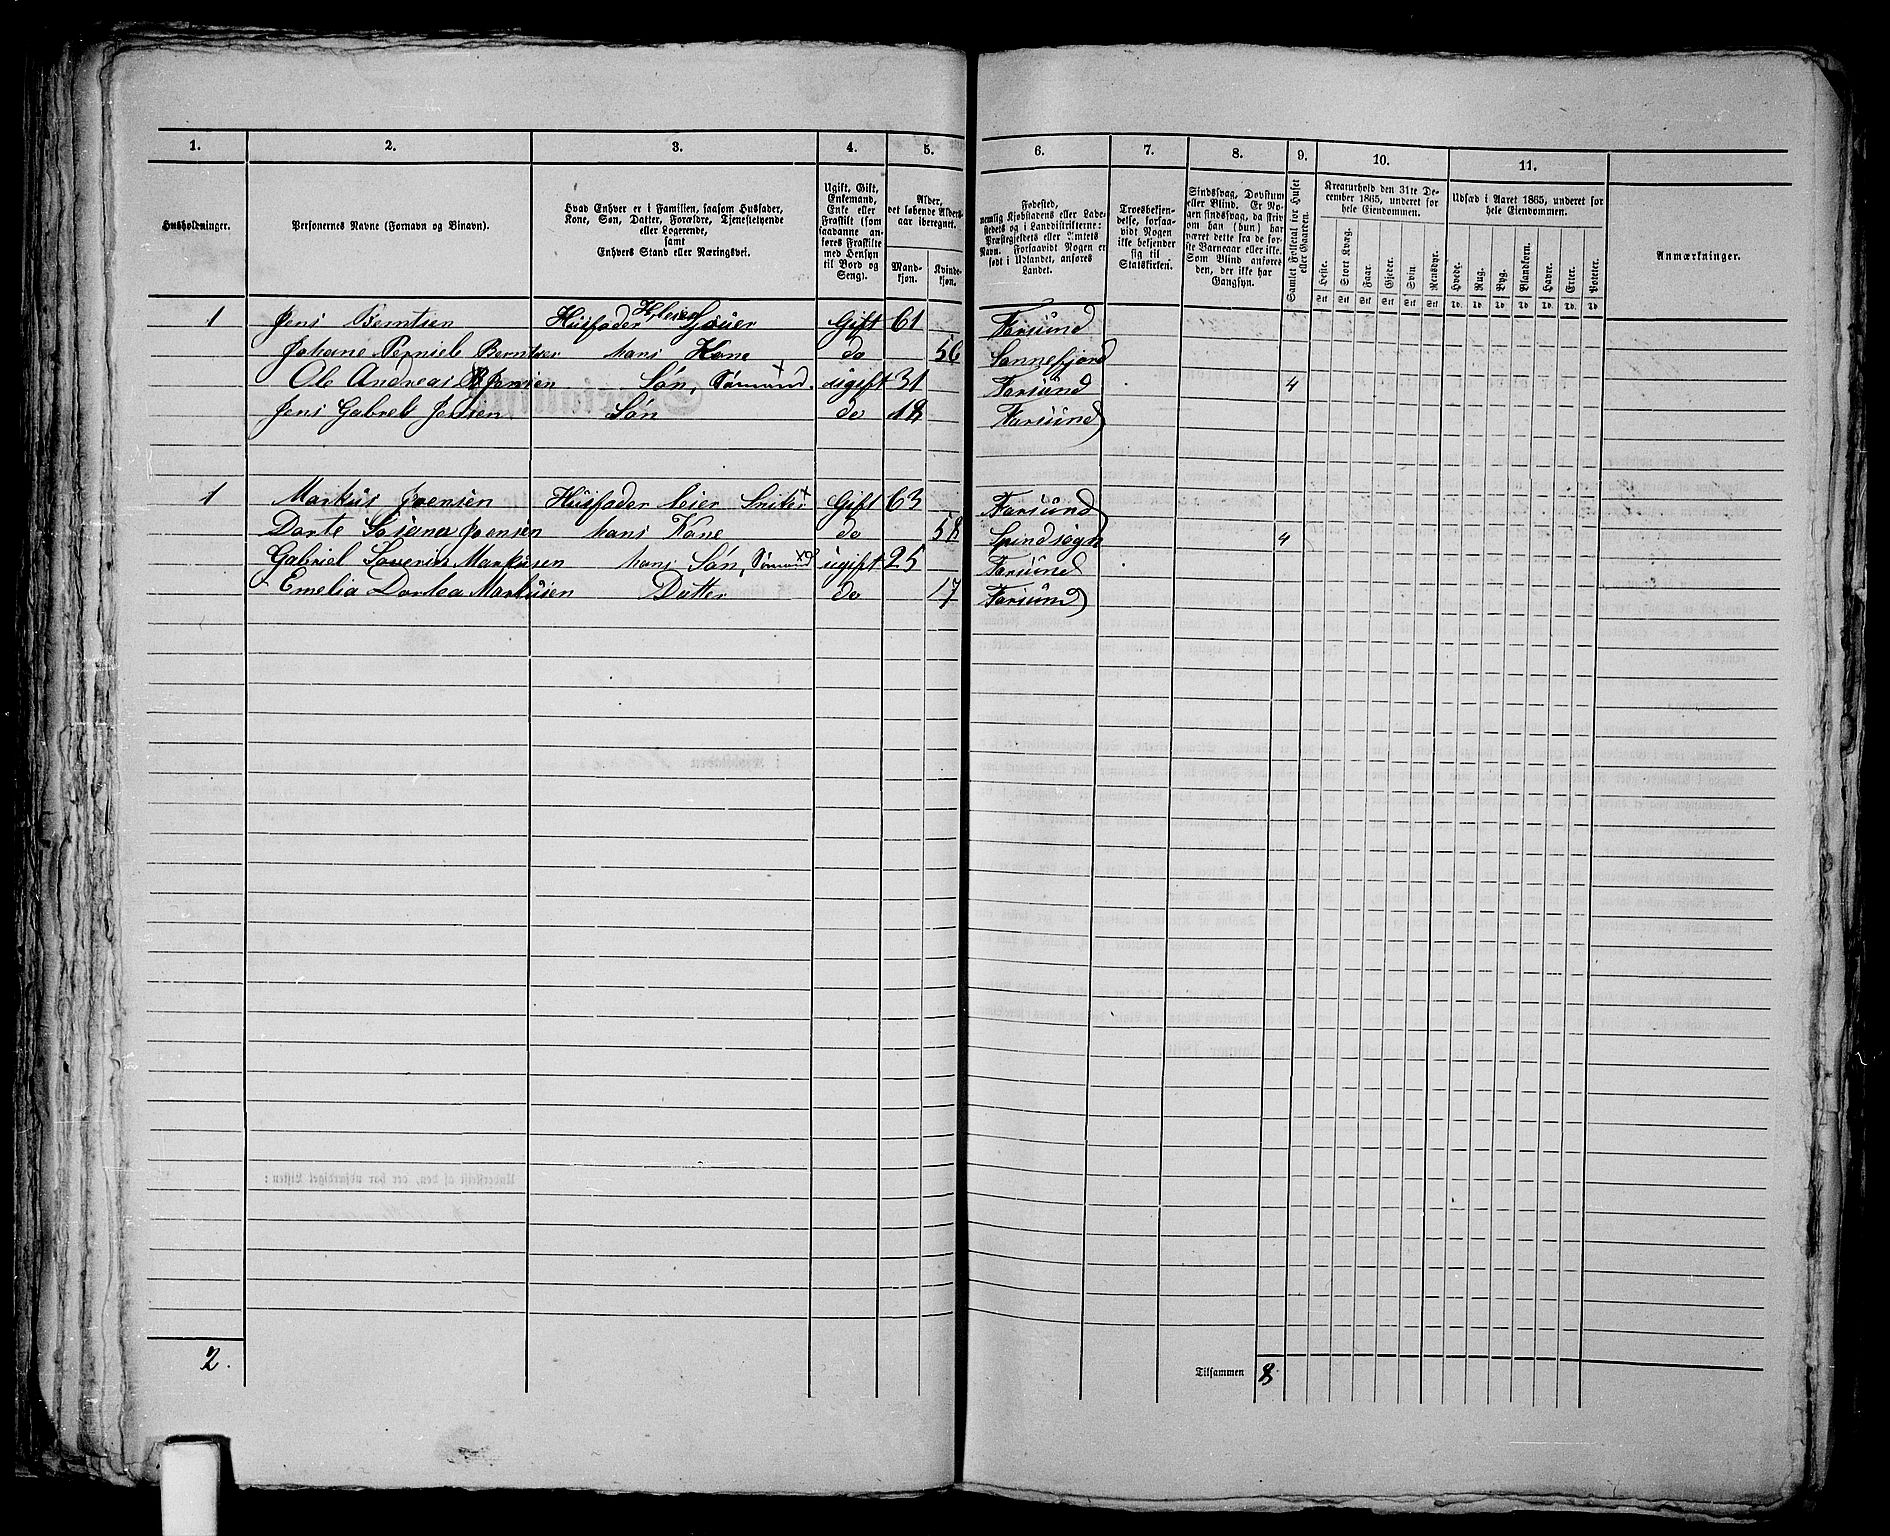 1. 2. 3. 4. 5. 6. 7. 8. 9. 10. 11.
Husholdninger.
Personernes Navne (Fornavn og Binavn).
Hvad Enhver er i Familien, saasom Husfader,
Kone, Søn, Datter, Forældre, Tjenestetyende
eller Logerende,
samt
Enhvers Stand eller Næringsvei.
Ugift, Gift,
Enkemand,
Enke eller
Fraskilt (som
saadanne an-
føres Fraskilte
med Hensyn
til Bord og
Seng).
Alder,
det løbende Alders-
aar iberegnet.
Mand-
kjøn.
Kvinde-
kjøn.
Fødested,
nemlig Kjøbstadens eller Lade-
stedets og i Landdistrikterne:
Præstegjeldets eller Amtets
Navn. Forsaavidt Nogen er
født i Udlandet, anføres
Landet.
Troesbekjen-
delse, forsaa-
vidt Nogen
ikke bekjender
sig til
Statskirken.
Sindssvag, Døvstum
eller Blind. Er No-
gen sindssvag, da skriv
om han (hun) har
været dette fra de før-
ste Barneaar eller ikke.
Som Blind anføres
den, der ikke har
Gangsyn.
Samlet Folketal for Huset
eller Gaarden.
Kreaturhold den 31te De-
cember 1865, underet for
hele Eiendommen.
Heste. Stort Kvæg. Faar. Gjeder. Svin Rensdyr.
Stk Stk Stk Stk Stk Stk
Udsæd i Aaret 1865, underet for
hele Eiendommen.
Hvede. Rug. Byg. Blandkorn. Havre. Erter. Poteter.
Td. Td. Td. Td. Td. Td. Td
Anmærkninger.
1 Jens Berntsen Husfader Gift 61 Farsund
Johane Berntsen hans Kone do 56 Sannefjord
Ole Andreas Jensen Søn, Sømand ugift 31 Farsund 4
Jens Gabrel Jensen Søn do 18 Farsund
1 Markus Joensen Husfader leier Sniker Gift 63 Farsund
Dorte Joensen hans Kone do 58 Spindsogn 4
Gabriel Markusen hans Søn, Sømand ugift 25 Farsund
Emelia Dortea Markusen Datter do 17 Farsund
2.
Tilsammen 8